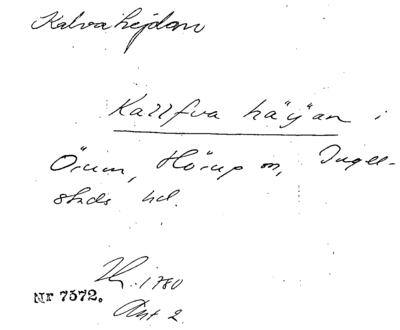 Kalvahejdan
Kallfva häÿan i
Örum, Hörup sn, Ingel-
stads hd.
1780
Nr 7572.
Akt 2